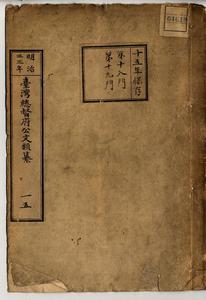 十五年保存
第十八門
第十九門
明治
三三年
臺灣總督府公文類纂
一五